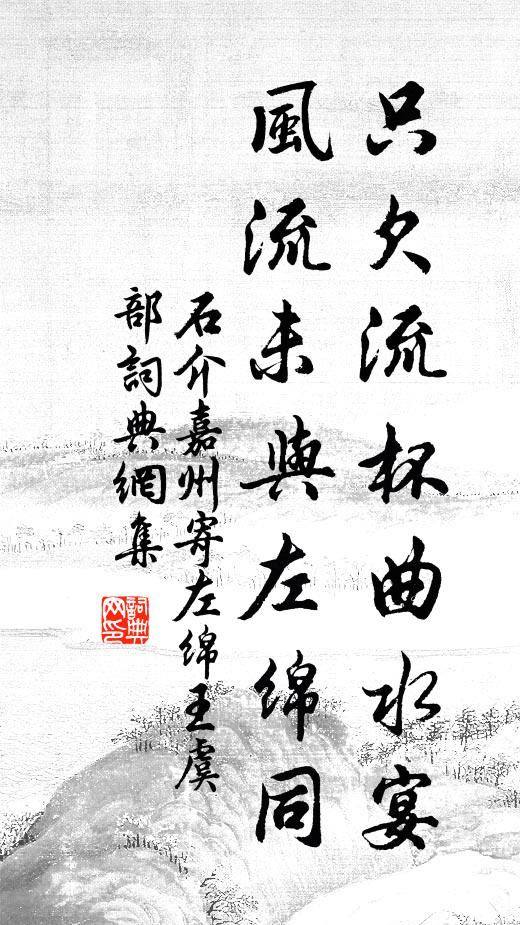 只欠流杯曲水宴
風流未與左綿同
石介嘉州寄左綿王虞
部詞典網集
詞典
网印